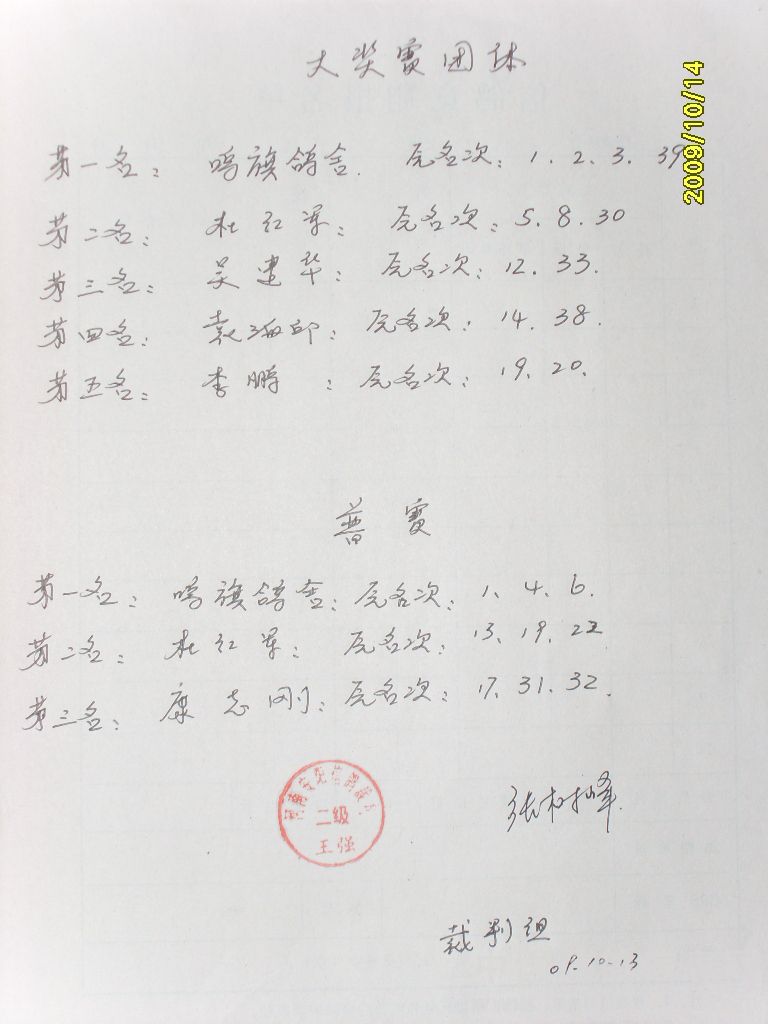 大奖赛团体
2009/10/14
第一名: 鸣旗鸽舍. 原名次: 1. 2. 3. 39
第二名: 杜红军: 原名次: 5. 8. 30
第三名: 吴建华: 原名次: 12. 33.
第四名: 袁海邱: 原名次: 14. 38.
第五名: 李鹏 : 原名次: 19. 20.
普赛
第一名: 鸣旗鸽舍: 原名次: 1. 4. 6.
第二名: 杜红军: 原名次: 13. 19. 22
第三名: 康志刚: 原名次: 17. 31. 32.
河南安阳信鸽裁判
二级
王强
裁判组
09.10.13